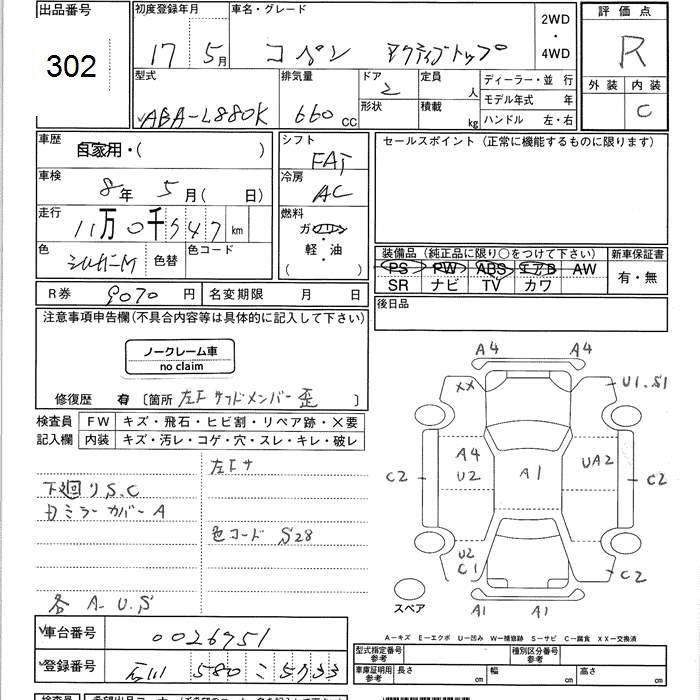 出品番号 302
初度登録年月 17 5月
車名・グレード コペン アクティブトップ
2WD・4WD
評価点 R
外装 内装 C
型式 ABA-L880K
排気量 660 CC
ドア 2
形状
定員 人
積載 kg
ディーラー・並行
モデル年式 年
ハンドル 左・右
車歴 自家用・( )
車検 8年 5月( 日)
走行 11万0千747 km
色 シルバーM 色替 色コード
シフト FAT
冷房 AC
燃料 ガソリン 軽・油 ( )
セールスポイント (正常に機能するものに限ります)
装備品 (純正品に限り○をつけて下さい) 新車保証書
PS PW ABS エアB AW 有・無
SR ナビ TV カワ
R券 9070 円 名変期限 月 日
後日品
注意事項申告欄(不具合内容等は具体的に記入して下さい)
ノークレーム車
no claim
修復歴 有 〔箇所 左Fサイドメンバー 歪 〕
検査員 FW キズ・飛石・ヒビ割・リペア跡・×要
記入欄 内装 キズ・汚レ・コゲ・穴・スレ・キレ・破レ
左Fサ
下廻りS.C
ミラーカバーA
色コード S28
各 A-U.S
A4 A4
XX U1.S1
A4
U2 A1 UA2
C2 C2
U2
C1 C2
A1 A1
スペア
A－キズ E－エクボ U－凹み W－補修跡 S－サビ C－腐食 XX－交換済
車台番号 0026751
登録番号 石川 580 こ 5733
型式指定番号 参考 種別区分番号 参考
車庫証明用 参考 長さ cm 幅 cm 高さ cm